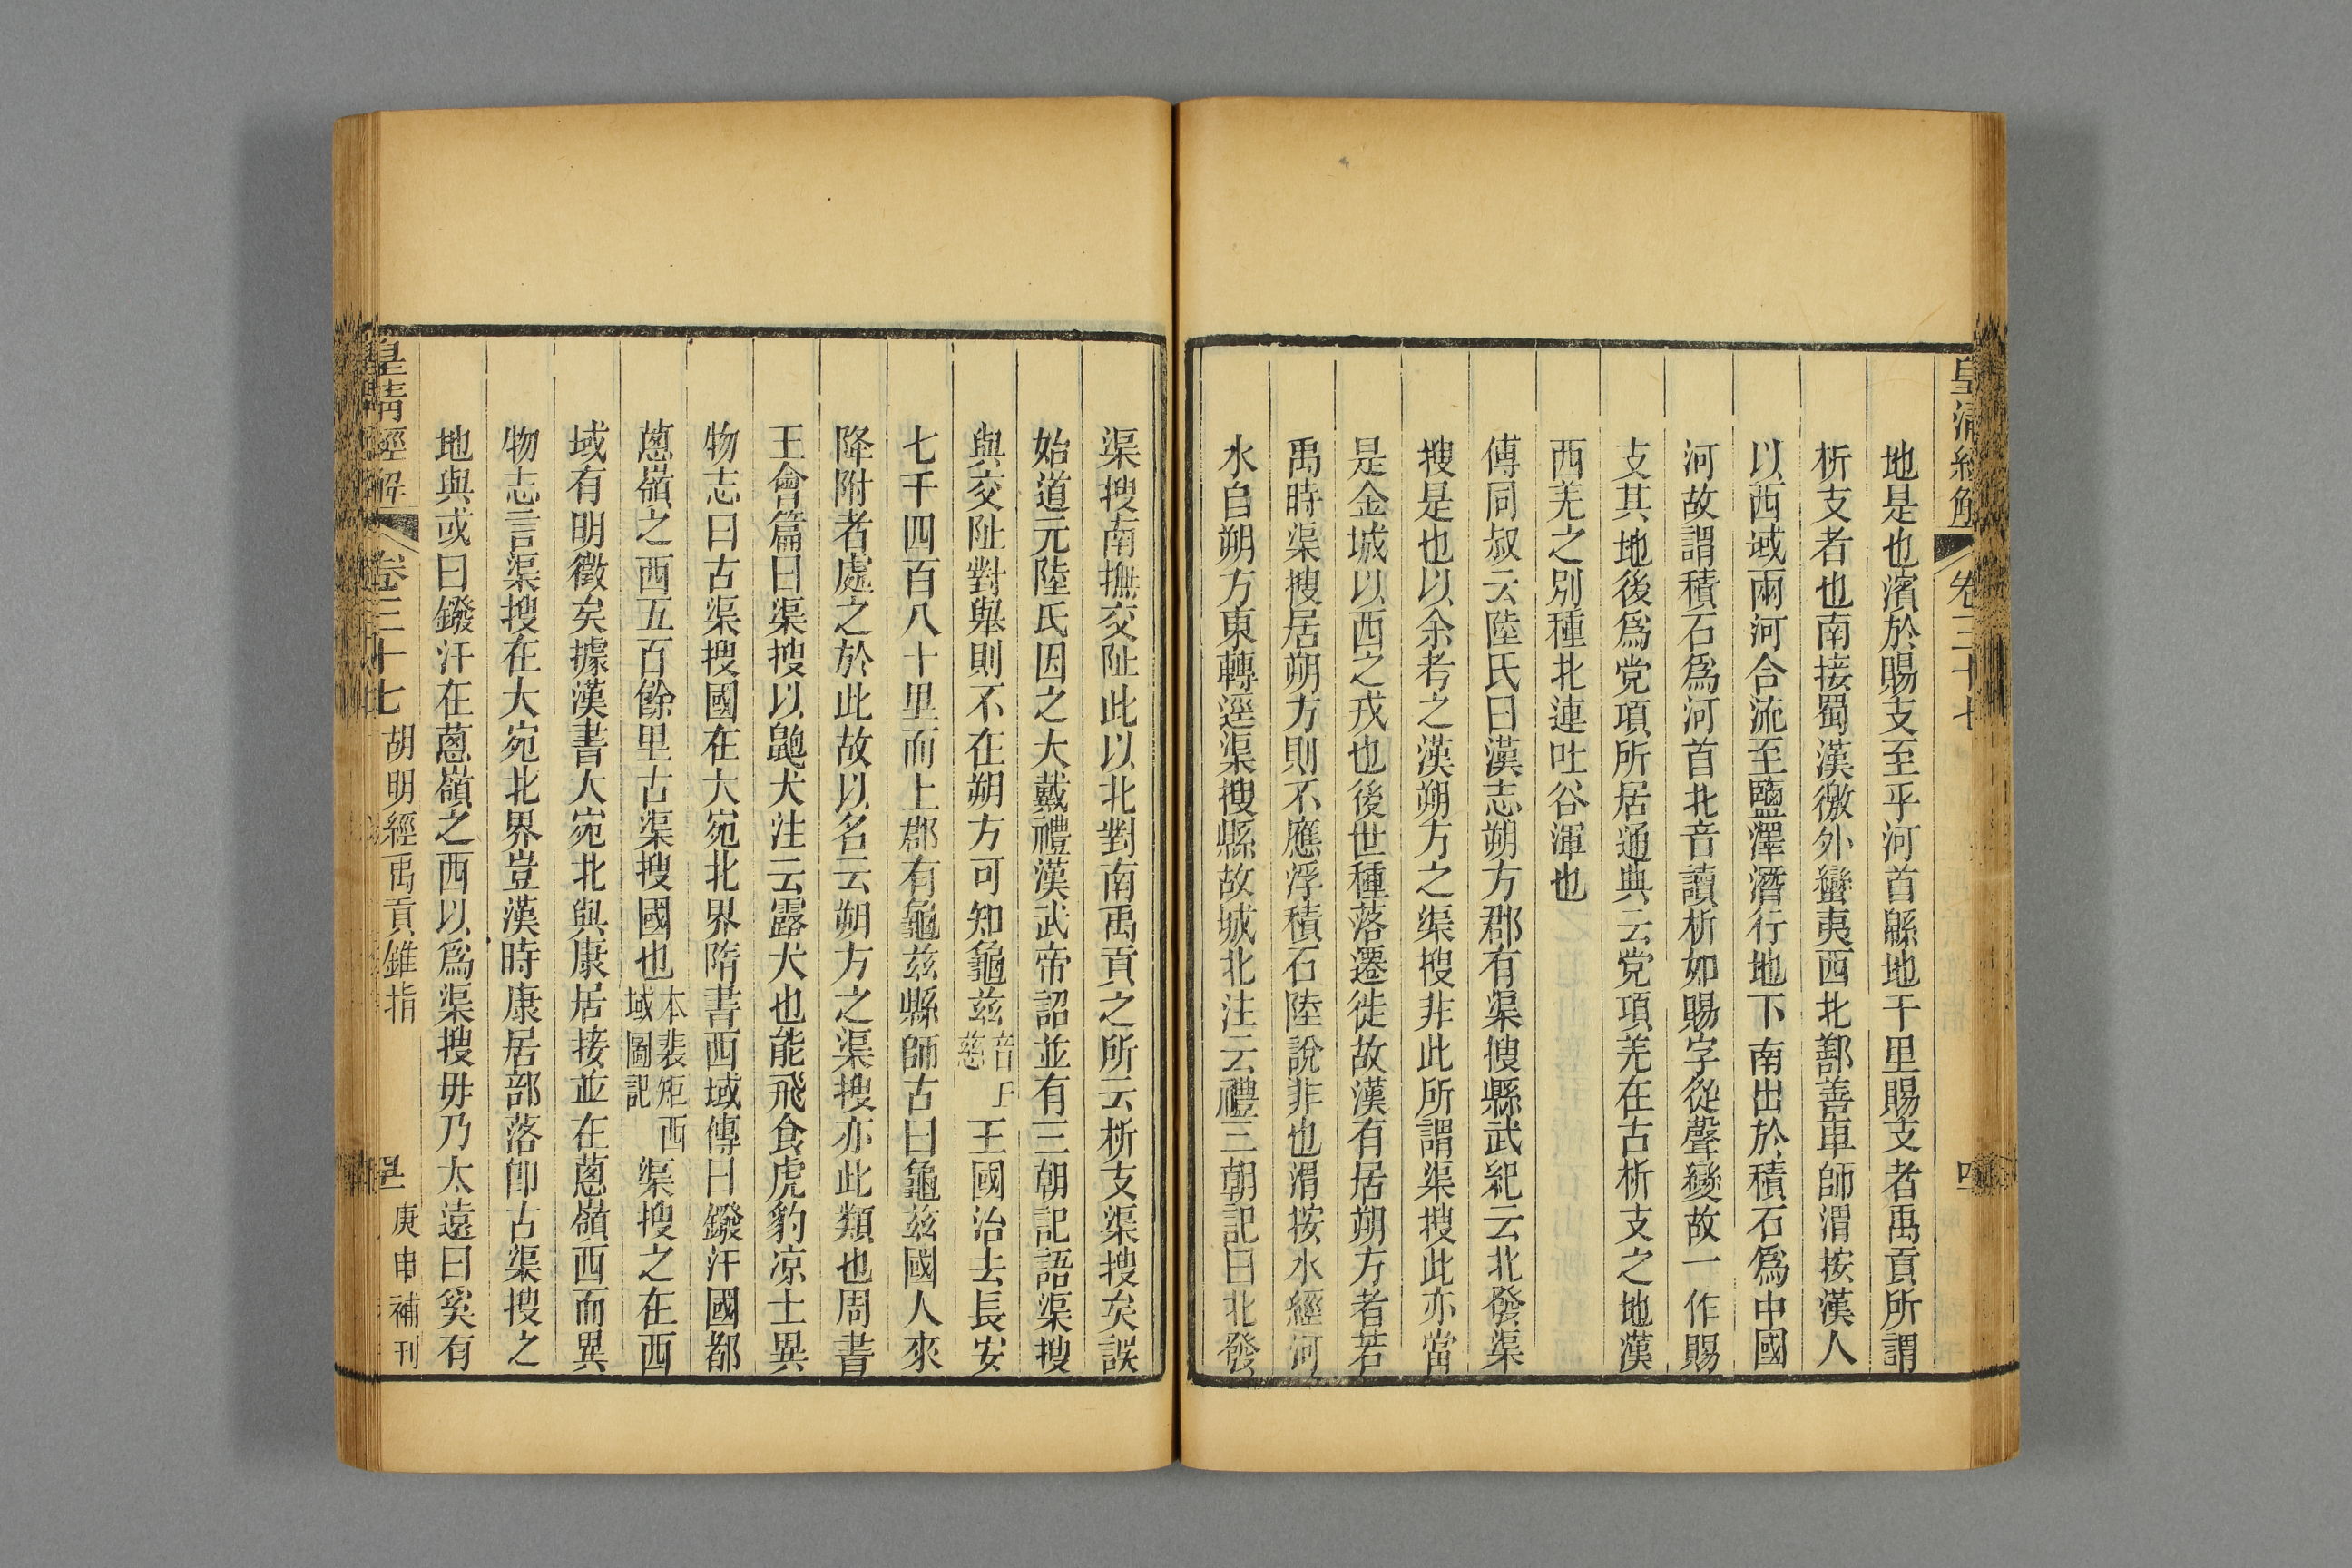 皇清經解
卷三十七
四
地是也濱於賜支至乎河首緜地千里賜支者禹貢所謂
析支者也南接蜀漢徼外蠻夷西北鄯善車師渭按漢人
以西域兩河合流至鹽澤潛行地下南出於積石爲中國
河故謂積石爲河首北音讀析如賜字從聲變故一作賜
支其地後爲党項所居通典云党項羌在古析支之地漢
西羌之別種北連吐谷渾也
傅同叔云陸氏曰漢志朔方郡有渠搜縣武紀云北發渠
搜是也以余考之漢朔方之渠搜非此所謂渠搜此亦當
是金城以西之戎也後世種落遷徙故漢有居朔方者若
禹時渠搜居朔方則不應浮積石陸說非也渭按水經河
水自朔方東轉逕渠搜縣故城北注云禮三朝記曰北發
渠搜南撫交阯此以北對南禹貢之所云析支渠搜矣誤
始道元陸氏因之大戴禮漢武帝詔並有三朝記語渠搜
與交阯對舉則不在朔方可知龜茲音丘慈王國治去長安
七千四百八十里而上郡有龜茲縣師古曰龜茲國人來
降附者處之於此故以名云朔方之渠搜亦此類也周書
王會篇曰渠搜以鼩犬注云露犬也能飛食虎豹凉土異
物志曰古渠搜國在大宛北界隋書西域傳曰鏺汗國都
蔥嶺之西五百餘里古渠搜國也本裴矩西域圖記渠搜之在西
域有明徵矣據漢書大宛北與康居接並在蔥嶺西而異
物志言渠搜在大宛北界豈漢時康居部落卽古渠搜之
地與或曰鏺汗在蔥嶺之西以爲渠搜毋乃太遠曰奚有
皇清經解
卷三十七
胡明經禹貢錐指
庚申補刊